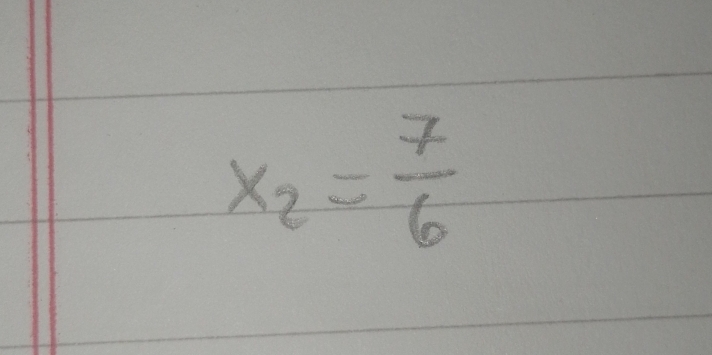 x₂ = 7/6